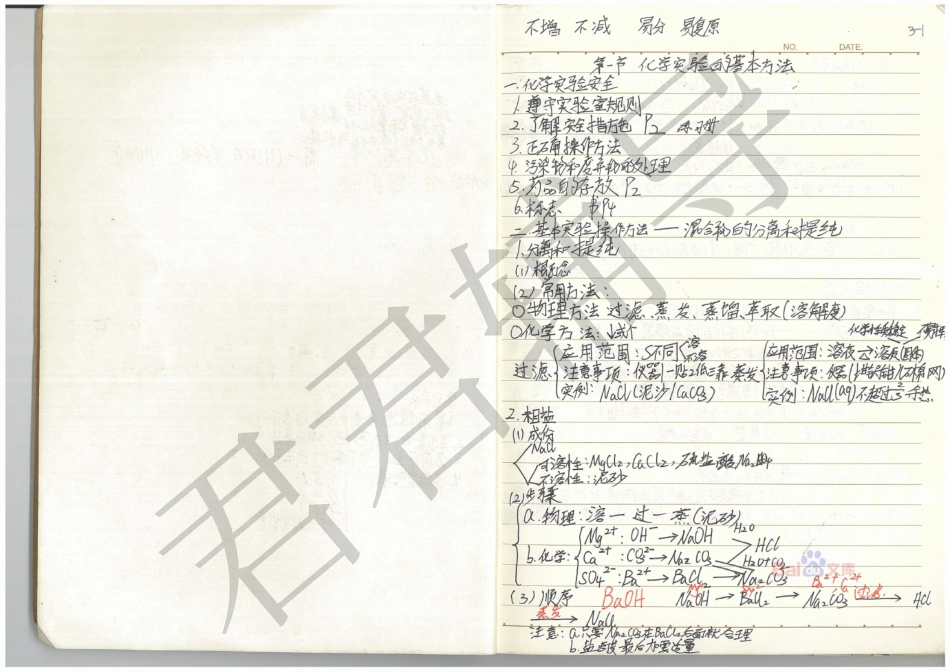 不增 不减 易分 易复原
3-1
NO. DATE.
第一节 化学实验的基本方法
一.化学实验安全
1.遵守实验室规则
2.了解安全措施 P2 练习册
3.正确操作方法
4.污染物和废弃物的处理
5.药品的存放 P2
6.标志 书P4
二.基本实验操作方法——混合物的分离和提纯
1.分离和提纯
(1)概念
(2)常用方法:
○物理方法 过滤、蒸发、蒸馏、萃取(溶解度)
○化学方法:
过滤 应用范围:S不同 溶 不溶
注意事项:仪器 一贴二低三靠
实例:NaCl(泥沙/CaCO3)
蒸发 应用范围:溶液→溶质(固体)
注意事项:仪器
实例:NaCl(aq)不超过2/3 余热
2.粗盐
(1)成份
NaCl
可溶性:MgCl2,CaCl2,硫酸盐
不溶性:泥砂
(2)步骤
a.物理:溶一过一蒸(泥砂)
b.化学: Mg2+:OH-→NaOH H2O
Ca2+:CO32-→Na2CO3 H2O+CO2 HCl
SO42-:Ba2+→BaCl2→Na2CO3
Ba2+,Ca2+
(3)顺序 BaOH NaOH→BaCl2→Na2CO3 过滤→HCl
蒸发→NaCl
注意:a.只要Na2CO3在BaCl2后面就合理
b.盐酸最后加要适量
君君辅导
Bai du 文库